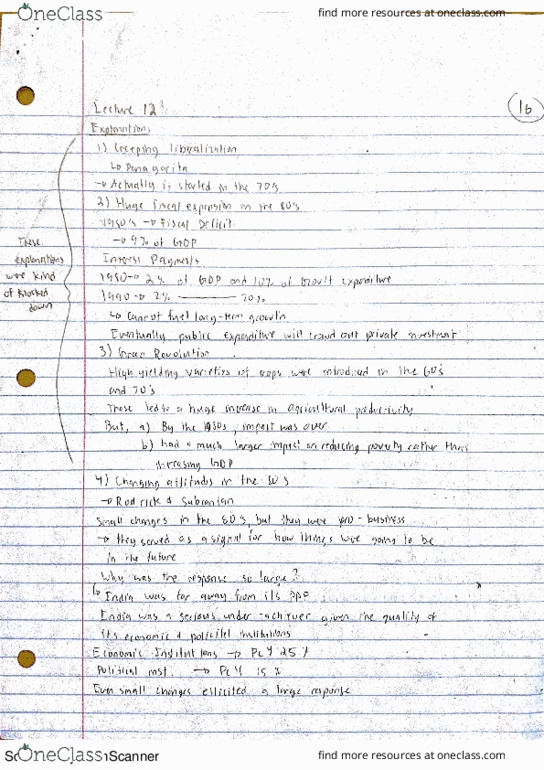 OneClass
find more resources at oneclass.com
16
Lecture 12
Explanations
1) Creeping liberalization
↳ Panagariya
→ Actually it started in the 70's
2) Huge fiscal expansion in the 80's
1980's → Fiscal Deficit
→ 9% of GDP
Interest Payments
1980 → 2% of GDP and 10% of Gov't expenditure
1990 → 2% ——— 20%
↳ Cannot fuel long-term growth
Eventually public expenditure will crowd out private investment
3) Green Revolution
High yielding varieties of crops were introduced in the 60's
and 70's
These led to a huge increase in agricultural productivity
But, a) By the 1980s, impact was over
b) had a much larger impact on reducing poverty rather than
increasing GDP
These
explanations
were kind
of knocked
down
4) Changing attitudes in the 80's
→ Rodrick & Subramian
Small changes in the 80's, but they were pro-business
→ they served as a signal for how things were going to be
in the future
Why was the response so large?
↳ India was far away from its PPF
India was a serious under-achiever given the quality of
its economic & political institutions
Economic Institutions → PCY 25%
Political inst. → PCY 15%
Even small changes ellicited a large response
OneClass
Scanner
find more resources at oneclass.com